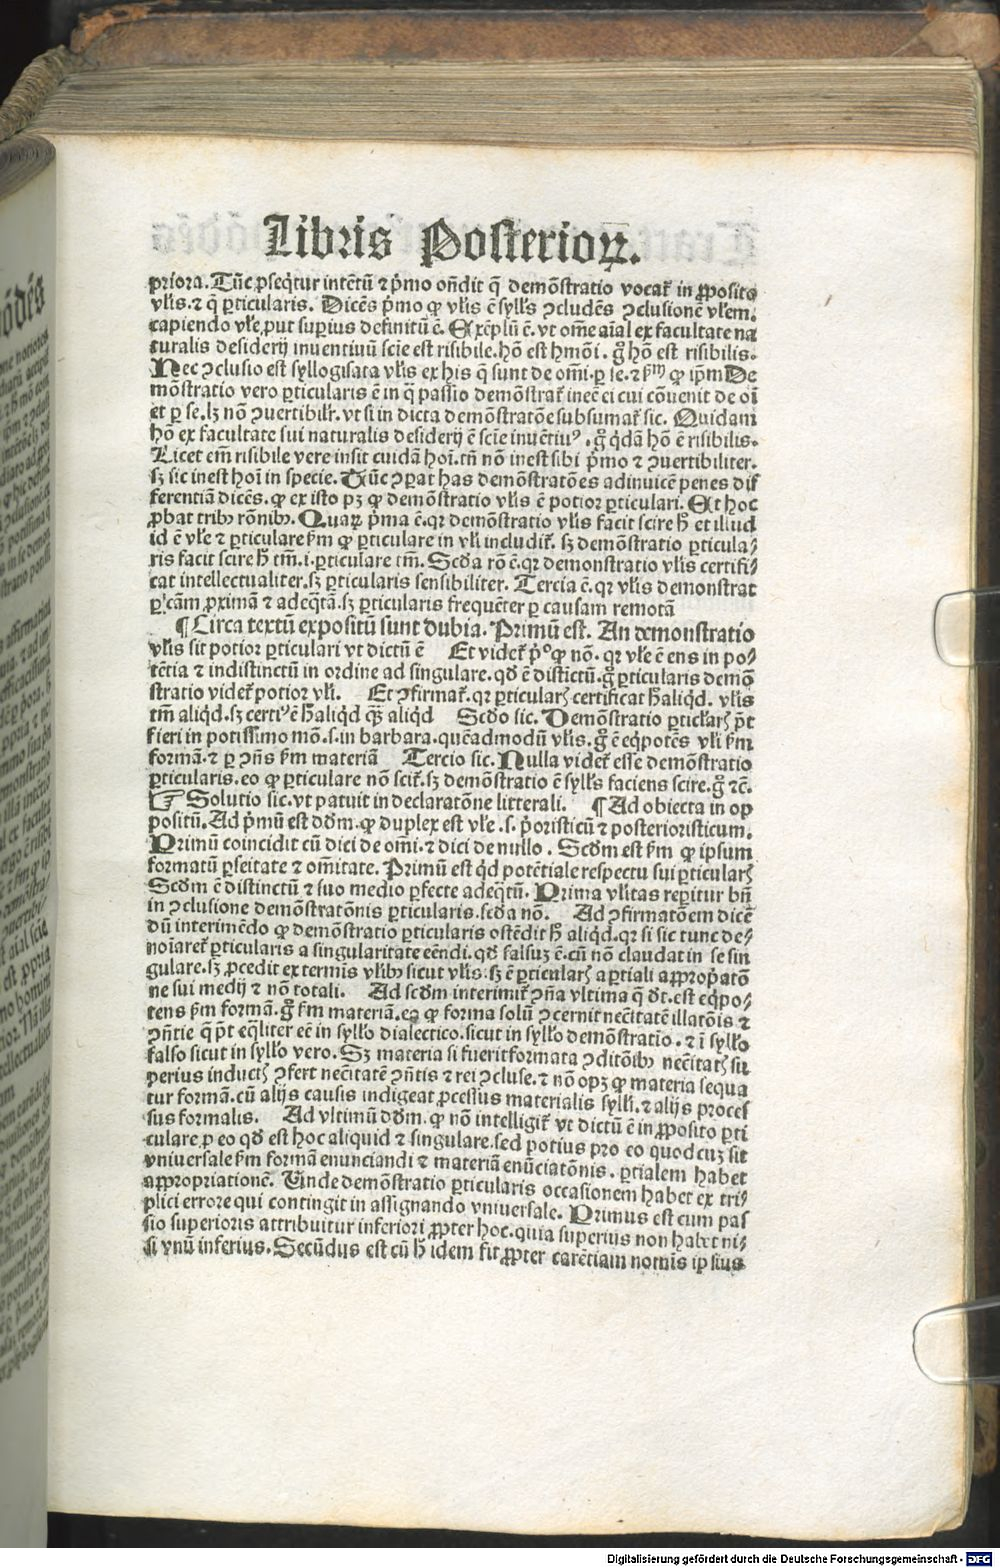 Libris Posterioꝝ.
priora. Tūc ꝓseq̄tur intētū ⁊ p̄mo oñdit q̄ demōstratio vocat᷑ in ꝓposito
vlis. ⁊ q̄ ꝑticularis. Dicēs p̄mo ꝙ vlis ē sylls ꝯcludēs ꝯclusionē vlem.
capiendo vle, put suꝑius definitū ē. Exēplū ē. vt om̄e aīal ex facultate na
turalis desiderij inuentiuū scie est risibile. hō est hmōi. gͦ hō est risibilis.
Nec ꝯclusio est syllogisata vlis ex his q̄ sunt de om̄i. ꝑ se. ⁊ ꝙ ip̄m De
mōstratio vero ꝑticularis ē in q̄ passio demōstrat᷑ ineē ei cui cōuenit de oī
et ꝑ se. lꝫ nō ꝯuertibilr̄. vt si in dicta demōstratōe subsumat᷑ sic. Quidam
hō ex facultate sui naturalis desiderij ē scie inuētiuꝰ. gͦ q̄dā hō ē risibilis.
Licet em̄ risibile vere insit cuidā hoī. tn̄ nō inest sibi p̄mo ⁊ ꝯuertibiliter.
sꝫ sic inest hoī in specie. Tūc ꝯꝑat has demōstratōes adinuicē penes dif
ferentiā dicēs. ꝙ ex isto pꝫ ꝙ demōstratio vlis ē potior ꝑticulari. Et hoc
ꝓbat tribꝫ rōnibꝫ. Quaꝝ p̄ma ē. qꝛ demōstratio vlis facit scire h̄ et illud
id ē vle ⁊ ꝑticulare ꝙ ꝑticulare in vli includit᷑. sꝫ demōstratio ꝑticula⸗
ris facit scire h̄ tm̄. i. ꝑticulare tm̄. Scd̄a rō ē. qꝛ demonstratio vlis certifi⸗
cat intellectualiter. sꝫ ꝑticularis sensibiliter. Tercia ē. qꝛ vlis demonstrat
ꝑ cām ꝓximā ⁊ adeq̄tā. sꝫ ꝑticularis frequēter ꝑ causam remotā
¶ Circa textū expositū sunt dubia. Primū est. An demonstratio
vlis sit potior ꝑticulari vt dictū ē Et videt᷑ pͦ ꝙ nō. qꝛ vle ē ens in po⸗
tētia ⁊ indistinctū in ordine ad singulare. qd̄ ē distictū. gͦ ꝑticularis demō
stratio videt᷑ potior vli. Et ꝯfirmat᷑. qꝛ ꝑticularꝭ certificat h̄ aliqd̄. vlis
tm̄ aliqd̄. sꝫ certiꝰ ē h̄ aliqd̄ aliqd̄ Scd̄o sic. Demōstratio ꝑticlarꝭ p̄t
fieri in potissimo mō. s. in barbara. quēadmodū vlis. gͦ ē eq̄potēs vli
formā. ⁊ ꝑ ꝯn̄s materiā Tercio sic. Nulla videt᷑ esse demōstratio
ꝑticularis. eo ꝙ ꝑticulare nō scit᷑. sꝫ demōstratio ē sylls faciens scire. gͦ ⁊c̄.
☞ Solutio sic. vt patuit in declaratōne litterali. ¶ Ad obiecta in op
positū. Ad p̄mū est dd̄m. ꝙ duplex est vle. s. p̄oristicū ⁊ posterioristicum.
Primū coincidit cū dici de om̄i. ⁊ dici de nullo. Scd̄m est ꝙ ipsum
formatū ꝑseitate ⁊ om̄itate. Primū est qd̄ potētiale respectu sui ꝑticularꝭ
Scd̄m ē distinctū ⁊ suo medio ꝑfecte adeq̄tū. Prima vlitas reꝑitur bn̄
in ꝯclusione demōstratōnis ꝑticularis. scd̄a nō. Ad ꝯfirmatōem dicē
dū interimēdo ꝙ demōstratio ꝑticularis ostēdit h̄ aliqd̄. qꝛ si sic tunc de⸗
noīaret᷑ ꝑticularis a singularitate eēndi. qd̄ falsuꝫ ē. cū nō claudat in se sin
gulare. sꝫ ꝓcedit ex termīs vlibꝫ sicut vlis. sꝫ ē ꝑticularꝭ a ꝑtiali apꝓp̄atō
ne sui medij ⁊ nō totali. Ad scd̄m interimit᷑ ꝯn̄a vltima q̄ dt̄. est eq̄po⸗
tens formā. gͦ materiā. eo ꝙ forma solū ꝯcernit necītatē illatōis ⁊
ꝯn̄tie q̄ p̄t eq̄liter eē in syllo dialectico. sicut in syllo demōstratio. ⁊ ī syllo
falso sicut in syllo vero. Sꝫ materia si fuerit formata ꝯditōibꝫ necītatꝭ su
perius inductꝭ ꝯfert necītatē ꝯn̄tis ⁊ rei ꝯcluse. ⁊ nō opꝫ ꝙ materia sequa
tur formā. cū alijs causis indigeat ꝓcessus materialis sylli. ⁊ alijs proces
sus formalis. Ad vltimū dd̄m. ꝙ nō intelligit᷑ vt dictū ē in ꝓposito ꝑti
culare. ꝑ eo qd̄ est hoc aliquid ⁊ singulare. sed potius pro eo quod cuꝫ sit
vniuersale formā enunciandi ⁊ materiā enūciatōnis. ꝑtialem habet
apꝓpriationē. Unde demōstratio ꝑticularis occasionem habet ex tri⸗
plici errore qui contingit in assignando vniuersale. Primus est cum pas
sio superioris attribuitur inferiori ꝓpter hoc. quia superius non habet ni⸗
si vnū inferius. Secūdus est cū h̄ idem fit ꝓpter carētiam nomīs ipsius
Digitalisierung gefördert durch die Deutsche Forschungsgemeinschaft - DFG